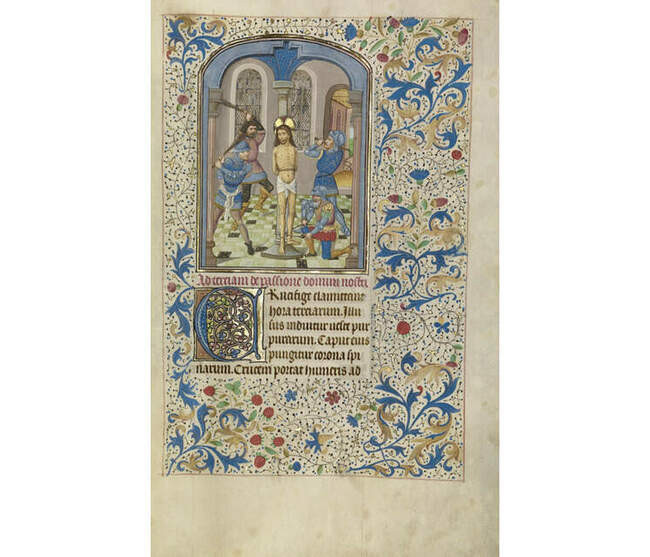 Ad terciam de passione domini nostri
Crucifige clamitant
hora terciarum. Illu
sus induitur veste pur
purarum. Caput eius
pungitur corona spi
narum. Crucem portat humeris ad